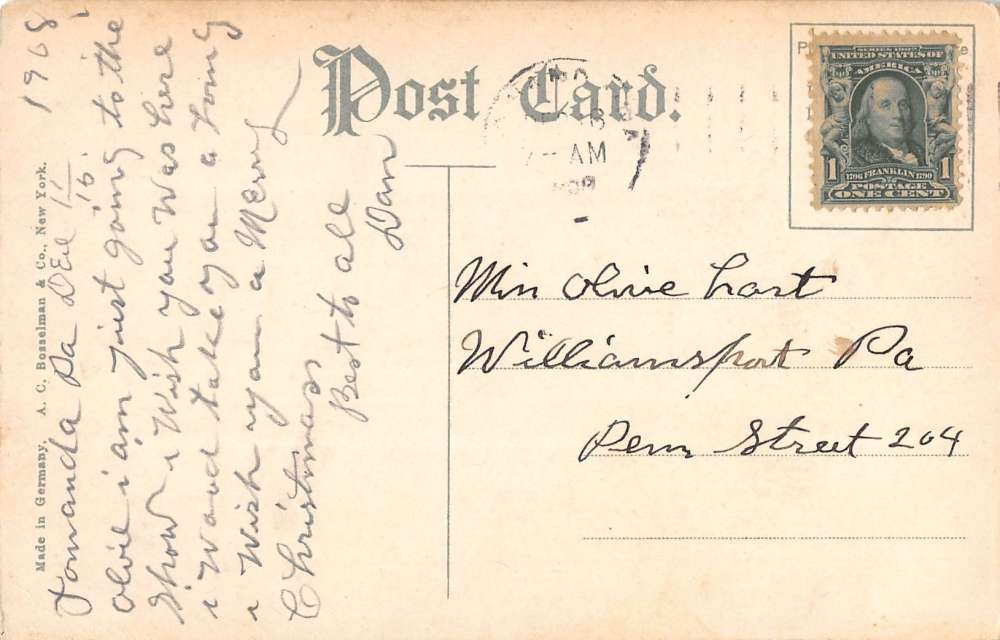 Made in Germany, A. C. Bosselman & Co., New York.
Tomanda Pa DEc 15 1908
Olvie i am just going to the
Show i Wish you Was here
i Wood take you an a Long
i Wish you a Merry
Christmass
Best to all
Dan
Post Card.
AM
SERIES 1902
UNITED STATES OF
AMERICA
1 1
1706 FRANKLIN 1790
POSTAGE
ONE CENT
Miss Olive Hart
Williamsport Pa
Penn Street 204